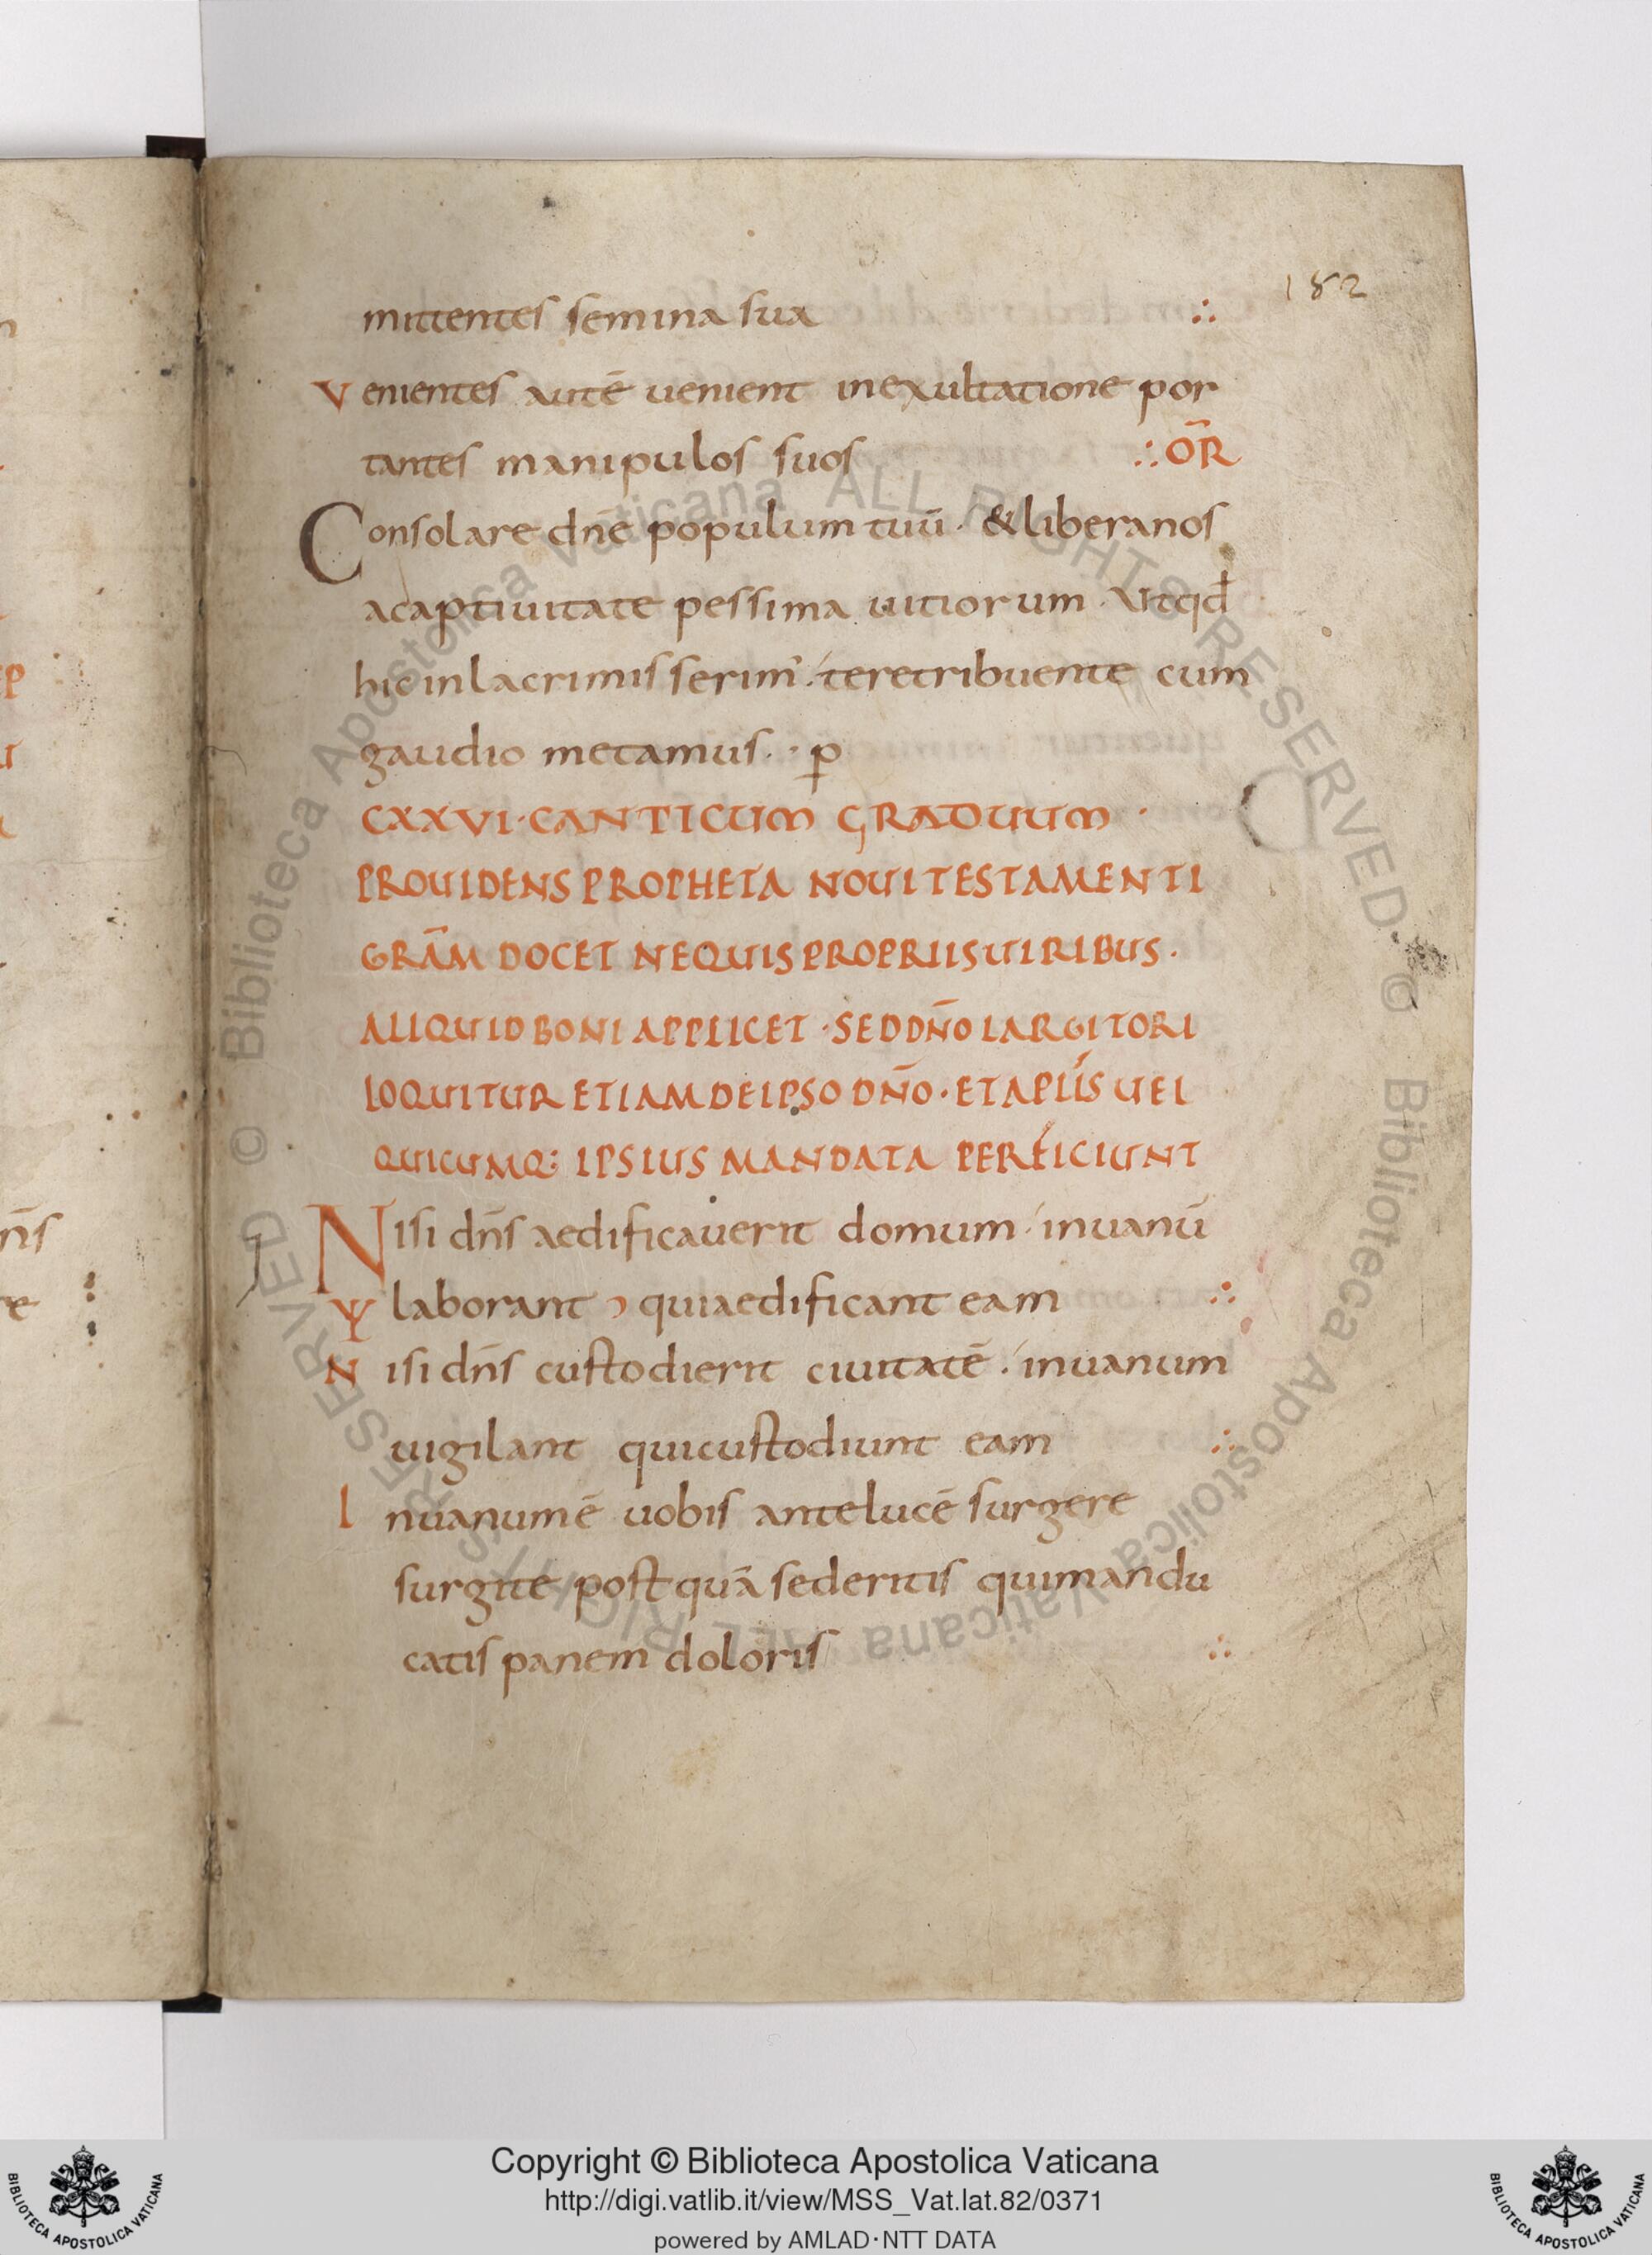 182
mittentes semina sua ∴
Venientes autē uenient inexultatione por
tantes manipulos suos ∴ ŌR
Consolare dn̄e populum tuū · & liberanos
acaptiuitate pessima uitiorum · Utqđ
hic inlacrimis serim' · teretribuente cum
gaudio metamus · · p̱
CXXVI · CANTICUM GRADUUM ·
PROUIDENS PROPHETA NOUI TESTAMENTI
GRĀM DOCET NEQUIS PROPRIIS UIRIBUS ·
ALIQUID BONI APPLICET · SED DN̄O LARGITORI
LOQUITUR ETIAM DE IPSO DN̄O · ET APLĪS UEL
QUICUMQ: IPSIUS MANDATA PERFICIUNT
Nisi dn̄s aedificauerit domum · inuanū
Ψ laborant quiaedificant eam ∴
Nisi dn̄s custodierit ciuitatē · inuanum
uigilant quicustodiunt eam ∴
Inuanumē uobis antelucē surgere
surgite postquā sederitis quimandu
catis panem doloris ∴
n̄s
re
Copyright © Biblioteca Apostolica Vaticana
http://digi.vatlib.it/view/MSS_Vat.lat.82/0371
powered by AMLAD·NTT DATA
BIBLIOTECA APOSTOLICA VATICANA
BIBLIOTECA APOSTOLICA VATICANA
© Biblioteca Apostolica Vaticana ALL RIGHTS RESERVED
© Biblioteca Apostolica Vaticana ALL RIGHTS RESERVED